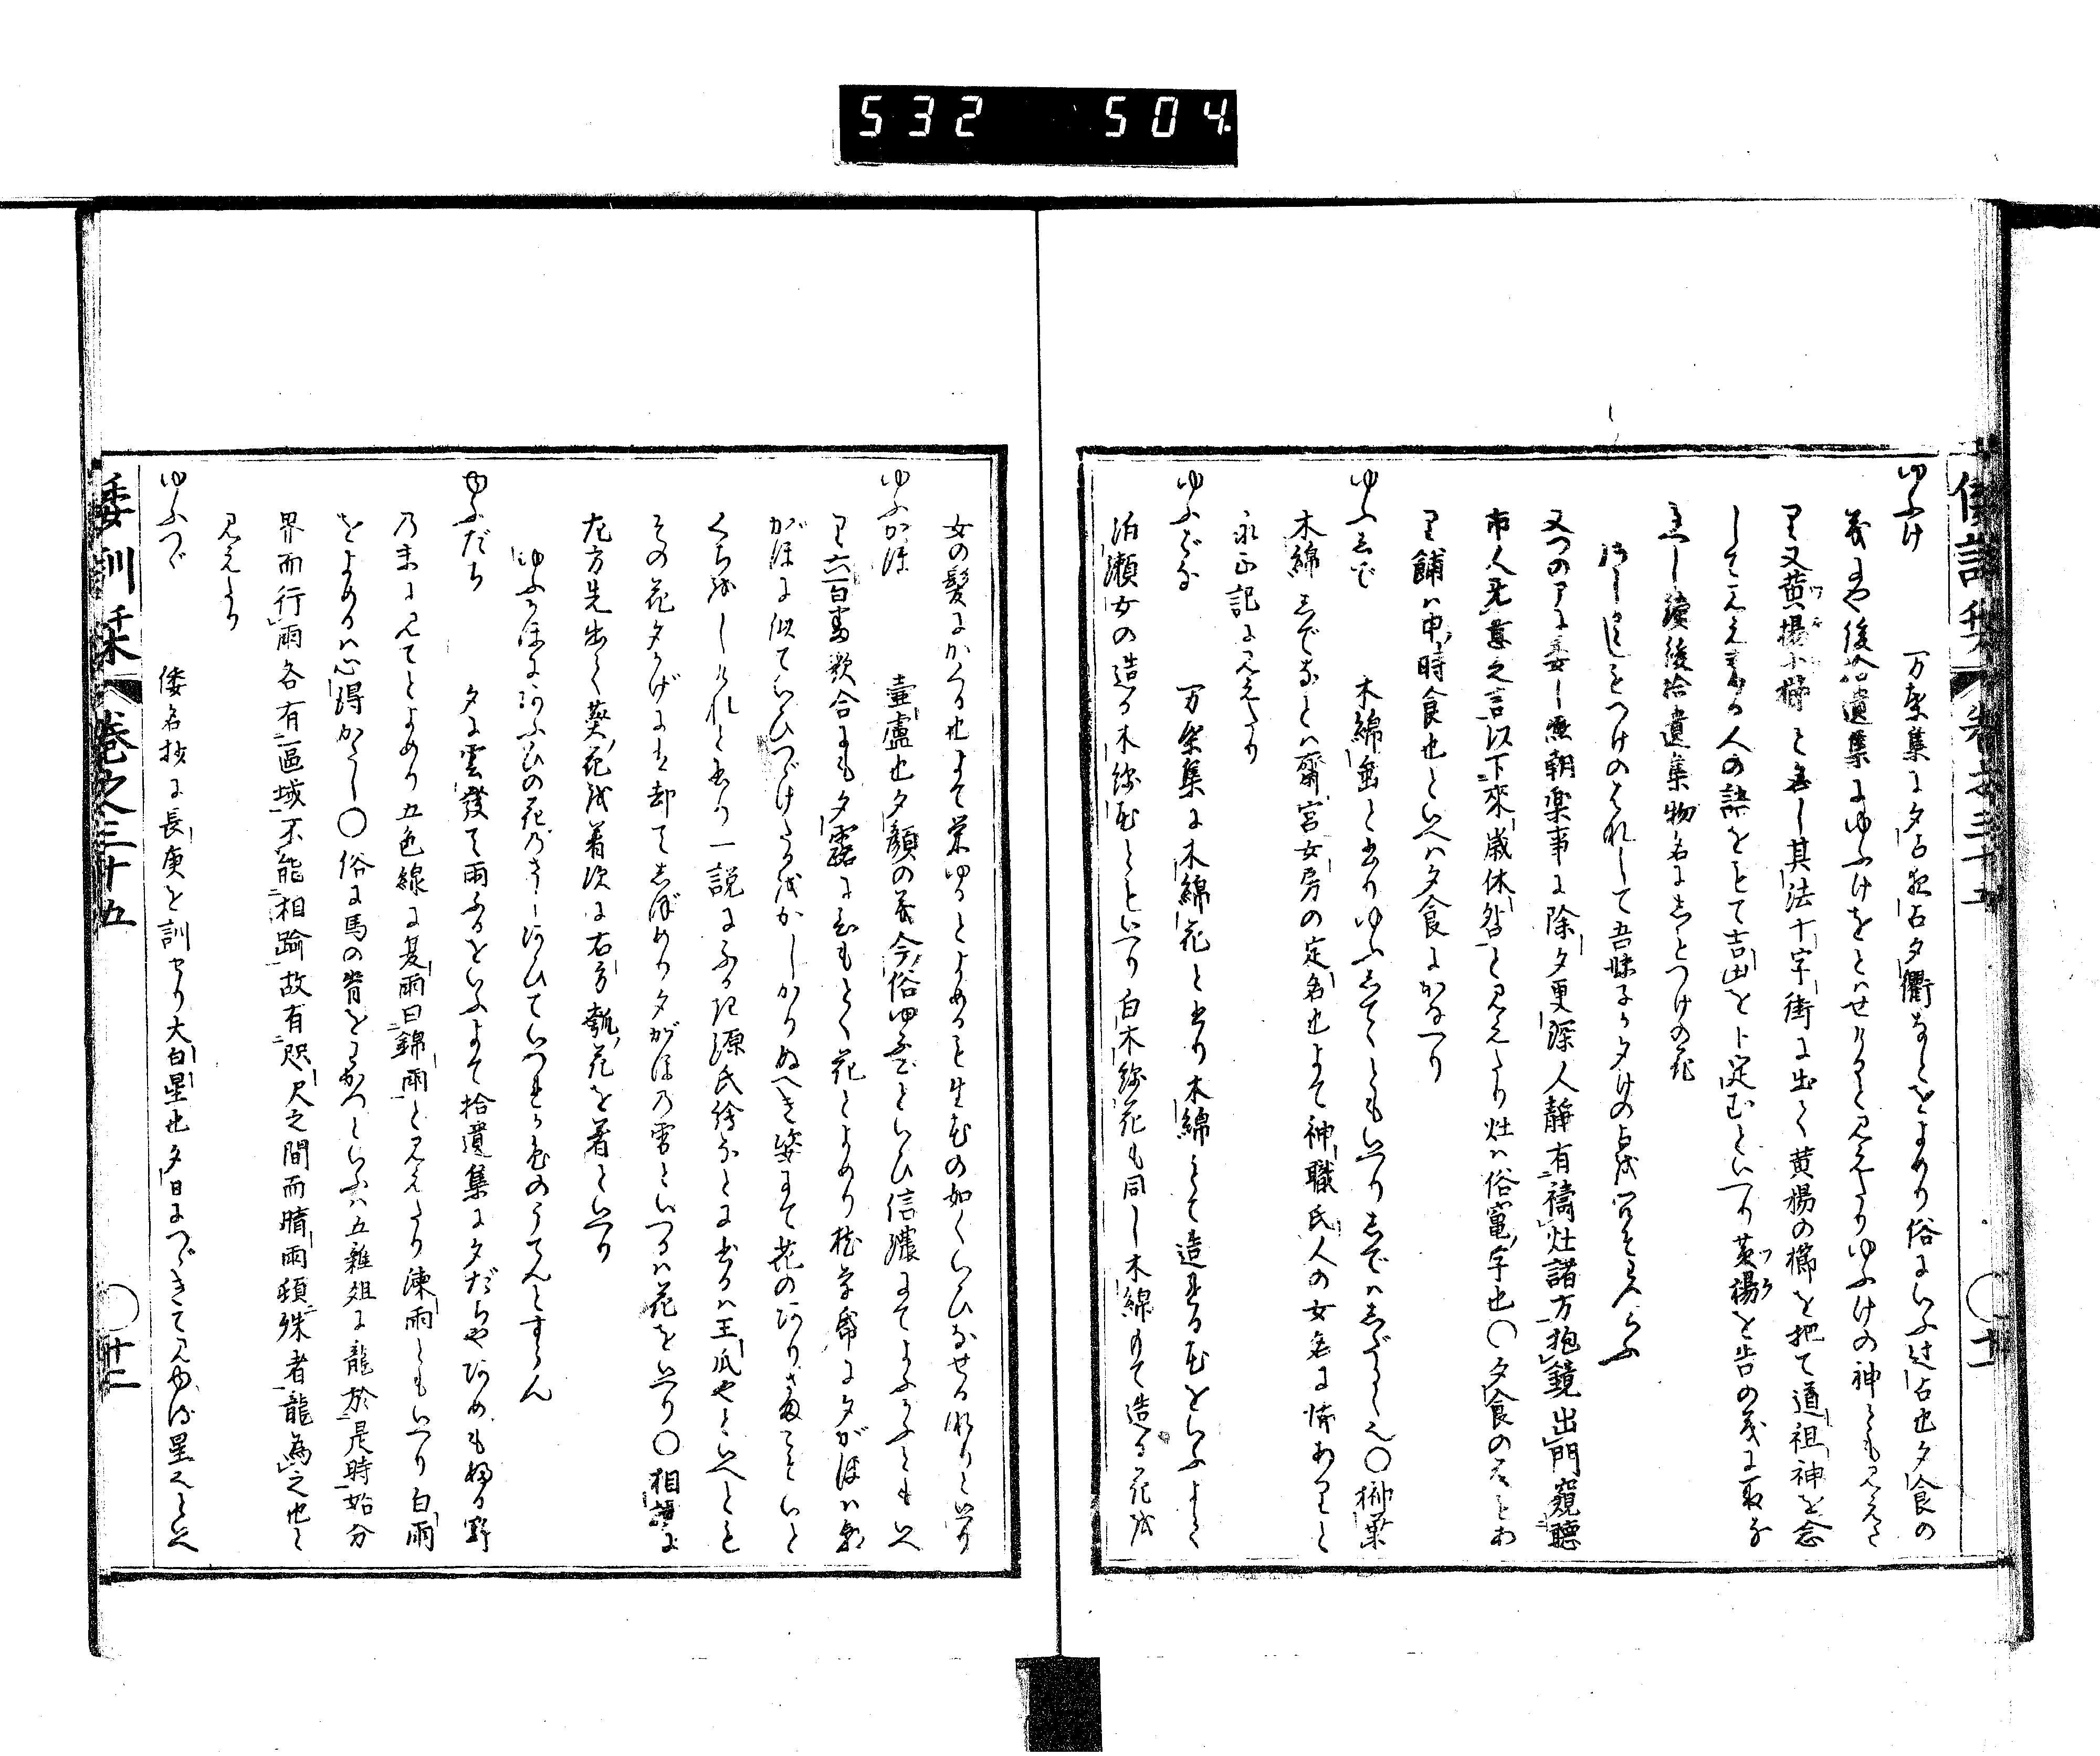 532 504
倭訓栞 巻之三十五 ○十一
ゆふけ 万葉集に夕占夜占夕衢なとをよめり俗にいふ辻占也夕食の
義にや後拾遺集にゆふけをとはせけると見えたりゆふけの神とも見えた
り又黄楊小櫛と名し其法十字街に出て黄楊の櫛を把て道祖神を念
して見え来る人の語をもて吉凶を卜定むといへり黄楊を告の義に取な
るへし續後拾遺集物名にしとつけの花
して吾妹子か夕けの占を問そわつらふ
又つの国に妻し熙朝楽事に除夕更深人静有禱灶諸方抱鏡出門窺聽
市人無意之言以下來歳休咎と見えたり灶は俗竈字也○夕食の義をわ
り餔は申時食也といへは夕食にかなへり
ゆふしで 木綿垂と書りゆふしてゝともいへりしでは しだり也○榊葉
木綿しでなとは齋宮女房の定名也よて神職氏人の女名に憚ありと
永正記に見えたり
ゆふばな 万葉集に木綿花と書り木綿もて造れる花をいふよしく
泊瀬女の造る木綿花ともいへり白木綿花も同し木綿もて造る花を
女の髪にかくる也よて栄ゆるとよめるを生花の如くいひなせる也といへり
ゆふがほ 壷盧也夕顔の義今俗ゆふごといひ信濃にてよふかふともいへ
り六百番歌合にも夕露にひもとく花とよめり枕草帋に夕がほは朝
がほに似ていひつゞけたるをかしかりぬへき姿にて花のありさまこそいと
くちをしけれと書り一説にふるき源氏絵なとに書るは王瓜やといへとも
その花夕かげには却てしぼめり夕がほの宿といへるは花をいへり○相撲に
左方先出て葵花を着次に右方瓠花を着といへり
ゆふかほにあふひの花のさしあひていつれか色のうてんとすらん
ゆふだち 夕に雲發て雨ふるをいふよて拾遺集に夕だちやあめも ふる野
の末に見てとよめり五色線に夏雨曰錦雨と見えたり涷雨ともいへり白雨
をよめるは心得かたし○俗に馬の背をわかつといふは五雜俎に龍於是時始分
界而行雨各有區域不能相踰故有咫尺之間而晴雨頓殊者龍為之也と
見えたり
ゆふつゞ 倭名抄に長庚を訓せり大白星也夕日につゞきて見ゆる星也といへ
倭訓栞 巻之三十五 ○十二